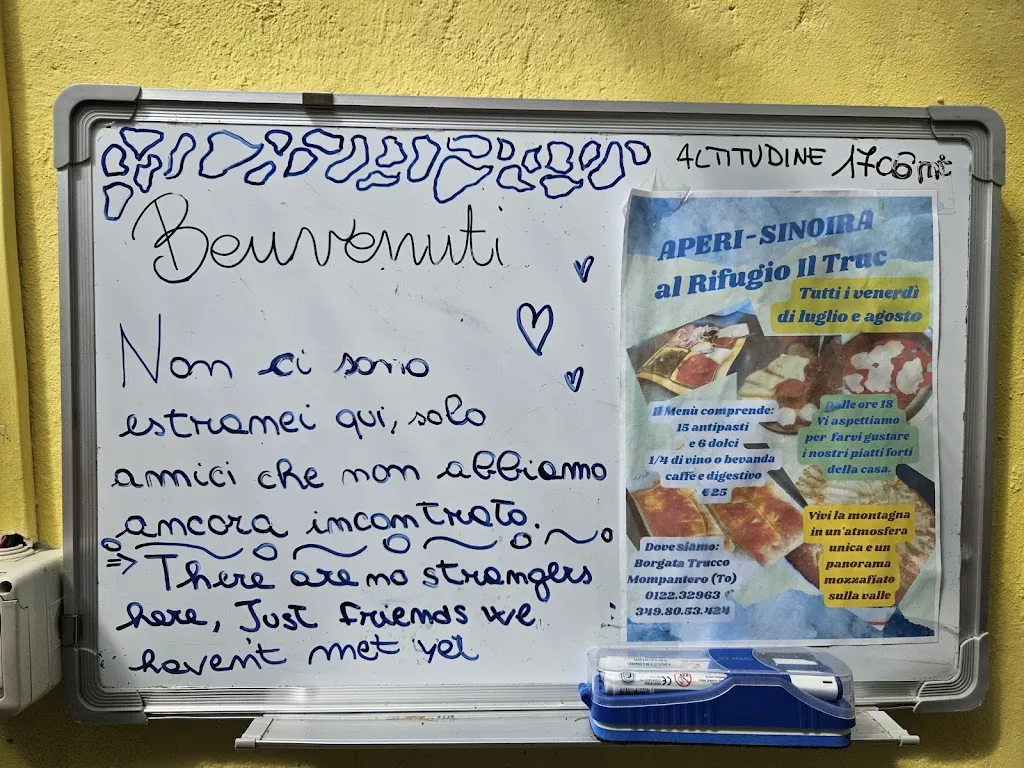 ALTITUDINE 1706 mt
Benvenuti
Non ci sono
estranei qui, solo
amici che non abbiamo
ancora incontrato.
=> There are no strangers
here, Just friends we
haven't met yet
APERI-SINOIRA
al Rifugio Il Truc
Tutti i venerdì
di luglio e agosto
Il Menù comprende:
15 antipasti
e 6 dolci
1/4 di vino o bevanda
caffè e digestivo
€25
Dalle ore 18
Vi aspettiamo
per farvi gustare
i nostri piatti forti
della casa.
Dove siamo:
Borgata Trucco
Mompantero (To)
0122.32963
349.80.53.424
Vivi la montagna
in un'atmosfera
unica e un
panorama
mozzafiato
sulla valle